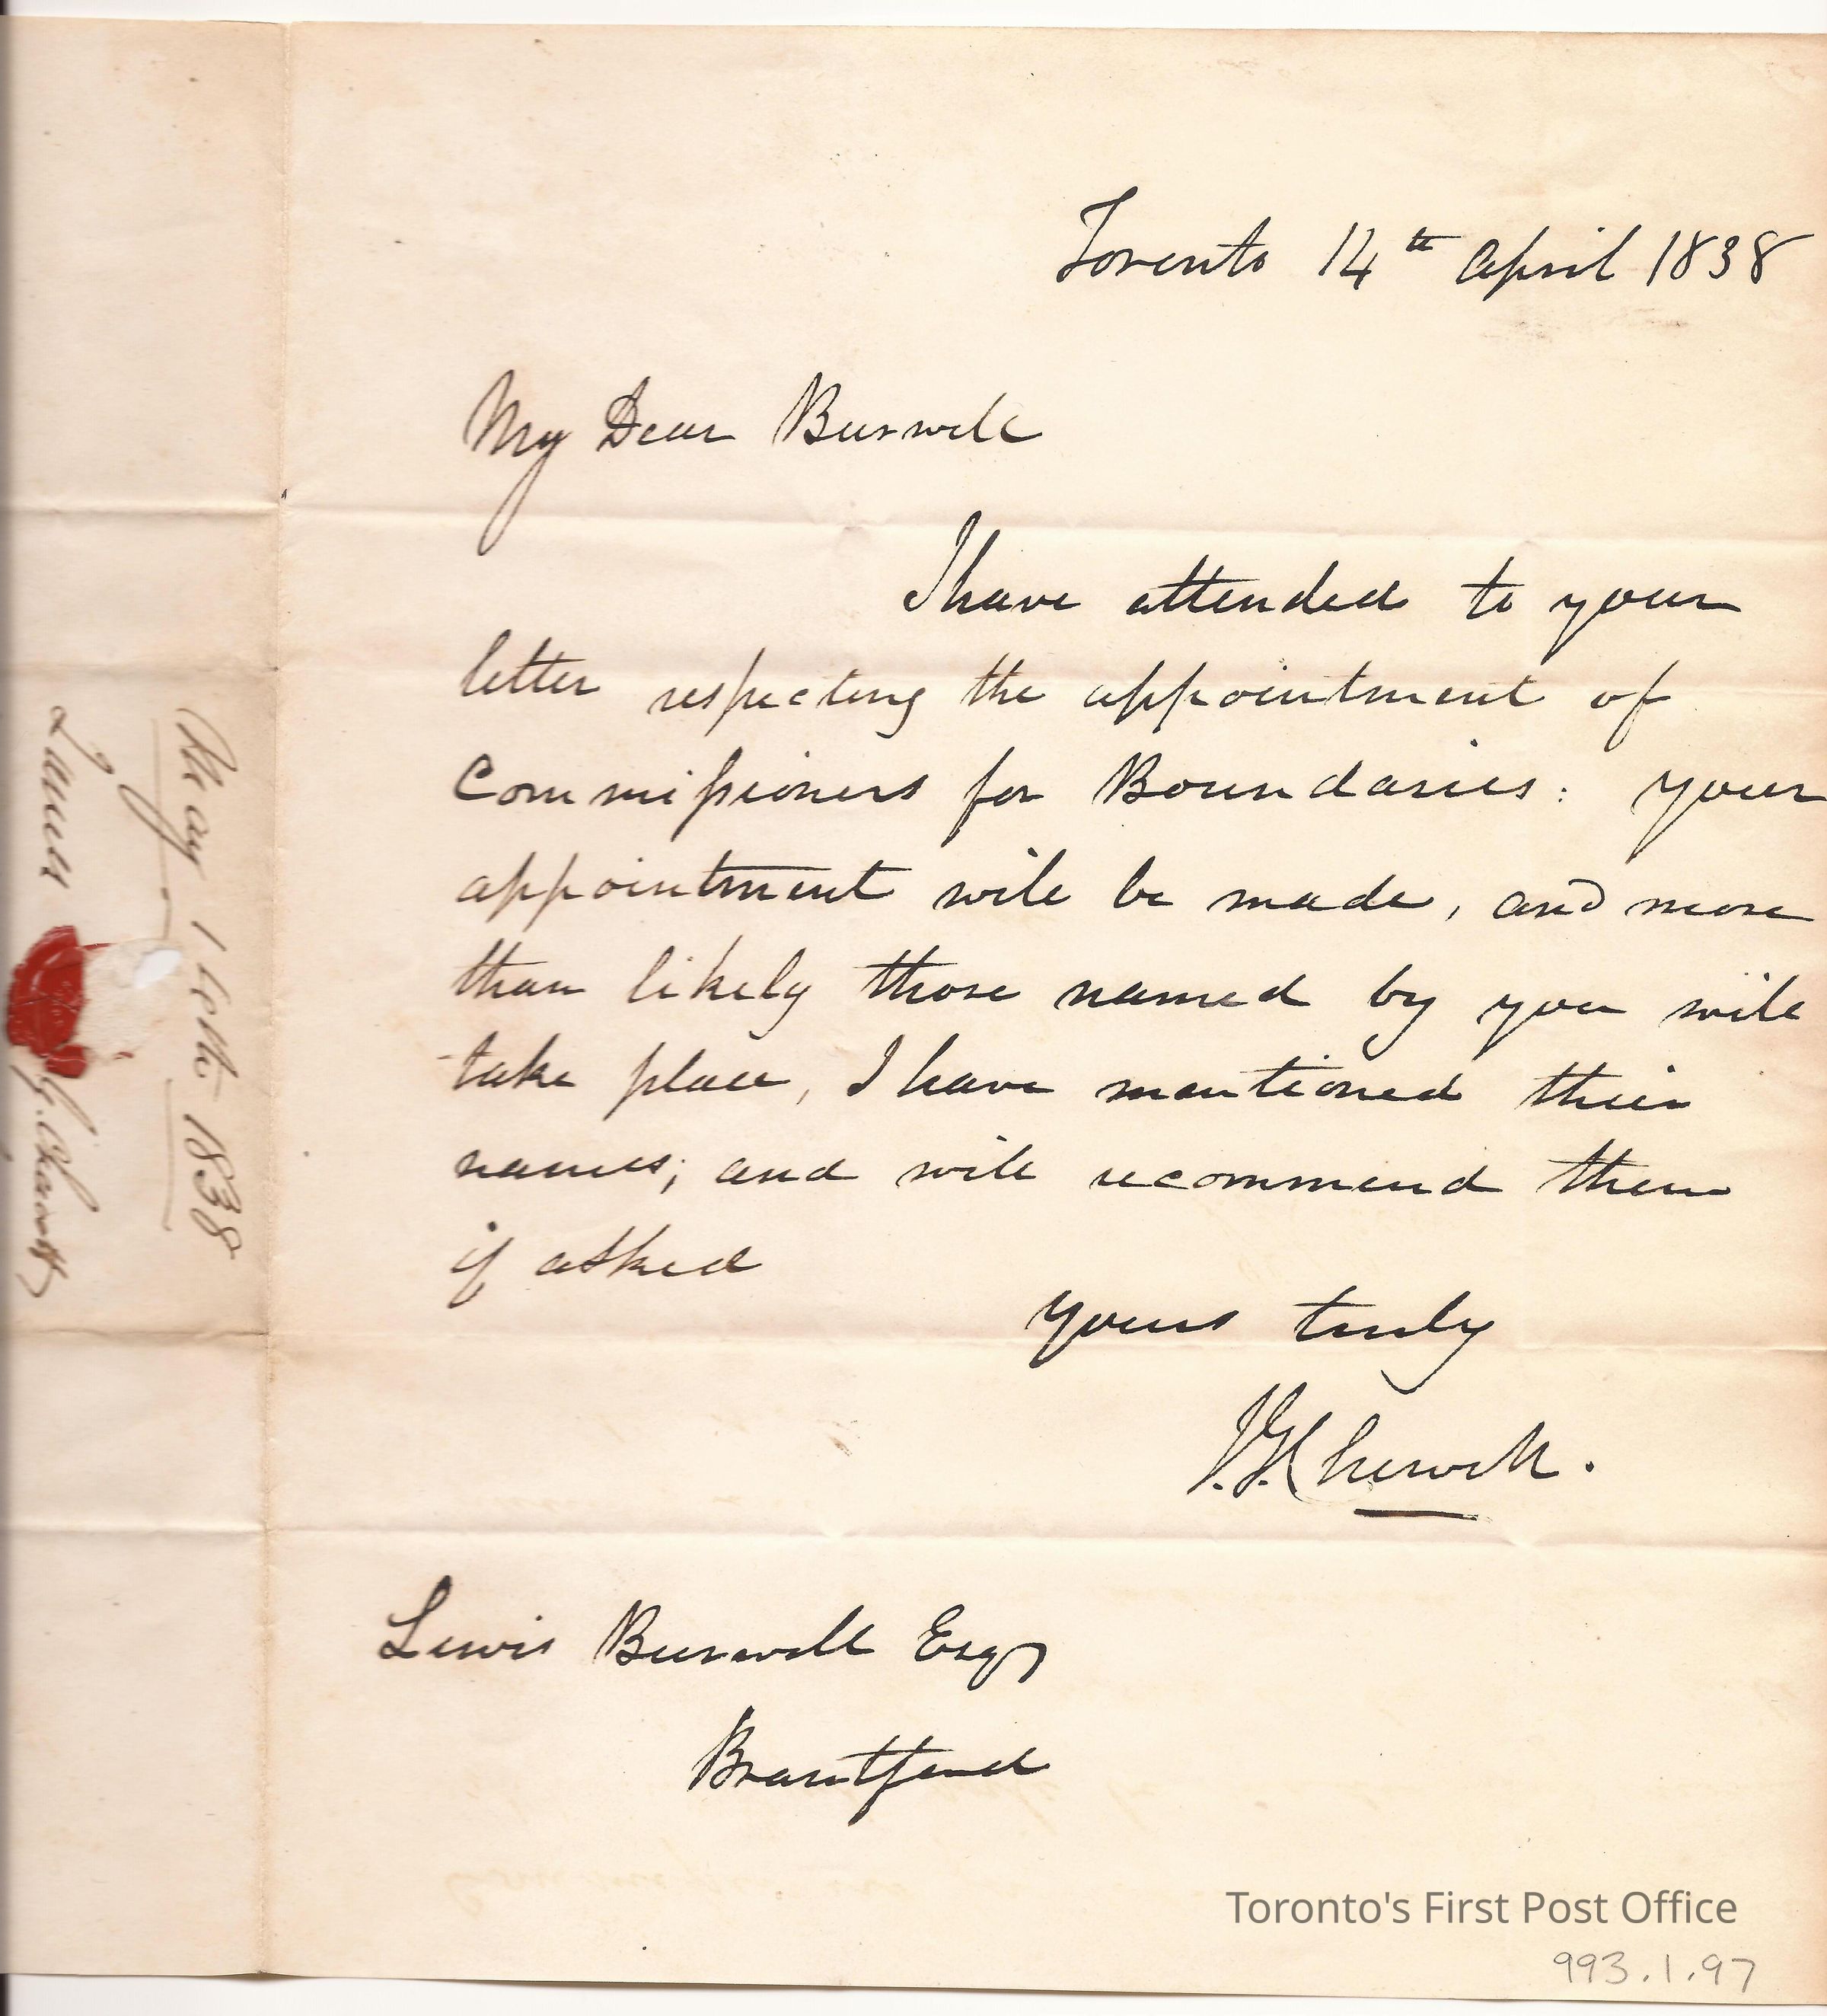 Toronto 14th April 1838
My Dear Burwell
I have attended to your
letter respecting the appointment of
Commissioners for Boundaries: your
appointment will be made, and more
than likely those named by you will
take place, I have mentioned their
names; and will recommend them
if asked
Yours truly
J.G. Chewett.
Lewis Burwell Esqr
Brantford
James
G. Chewett
May 1838
Toronto's First Post Office
993.1.97